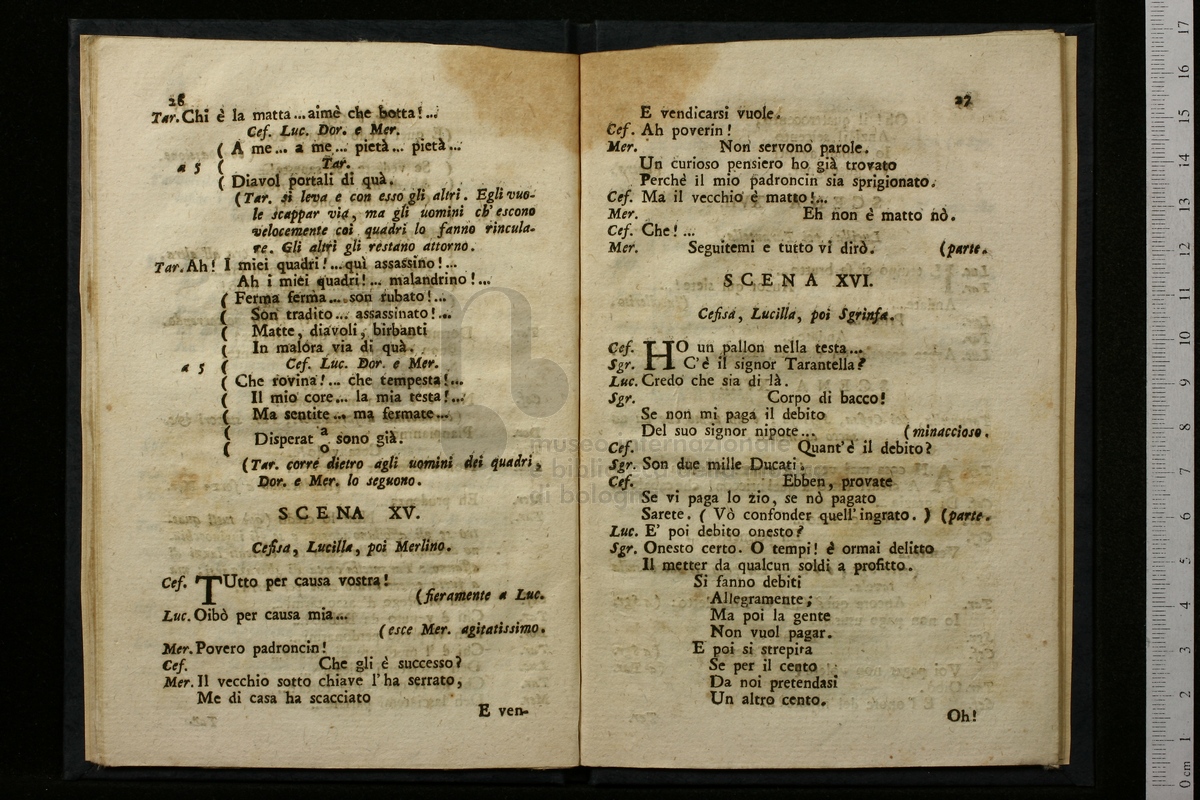 26
Tar. Chi è la matta... aimè che botta!...
Cef. Luc. Dor. e Mer.
( A me... a me... pietà... pietà...
a 5 ( Tar.
( Diavol portali di quà.
(Tar. si leva e con esso gli altri. Egli vuo-
le scappar via, ma gli uomini ch'escono
velocemente coi quadri lo fanno rincula-
re. Gli altri gli restano attorno.
Tar. Ah! I miei quadri!... quì assassino!...
Ah i miei quadri!... malandrino!...
( Ferma ferma... son rubato!...
( Son tradito... assassinato!...
( Matte, diavoli, birbanti
( In malora via di quà.
a 5 ( Cef. Luc. Dor. e Mer.
( Che rovina!... che tempesta!...
( Il mio core... la mia testa!...
( Ma sentite... ma fermate...
( Disperat a/o sono già!
(Tar. corre dietro agli uomini dei quadri,
Dor. e Mer. lo seguono.
SCENA XV.
Cefisa, Lucilla, poi Merlino.
Cef. TUtto per causa vostra!
(fieramente a Luc.
Luc. Oibò per causa mia...
(esce Mer. agitatissimo.
Mer. Povero padroncin!
Cef. Che gli è successo?
Mer. Il vecchio sotto chiave l'ha serrato,
Me di casa ha scacciato
E ven-
27
E vendicarsi vuole.
Cef. Ah poverin!
Mer. Non servono parole.
Un curioso pensiero ho già trovato
Perchè il mio padroncin sia sprigionato.
Cef. Ma il vecchio è matto!...
Mer. Eh non è matto nò.
Cef. Che!...
Mer. Seguitemi e tutto vi dirò. (parte.
SCENA XVI.
Cefisa, Lucilla, poi Sgrinfa.
Cef. HO un pallon nella testa...
Sgr. C'è il signor Tarantella?
Luc. Credo che sia di là.
Sgr. Corpo di bacco!
Se non mi paga il debito
Del suo signor nipote... (minaccioso.
Cef. Quant'è il debito?
Sgr. Son due mille Ducati.
Cef. Ebben, provate
Se vi paga lo zio, se nò pagato
Sarete. ( Vò confonder quell'ingrato. ) (parte.
Luc. E' poi debito onesto?
Sgr. Onesto certo. O tempi! è ormai delitto
Il metter da qualcun soldi a profitto.
Si fanno debiti
Allegramente;
Ma poi la gente
Non vuol pagar.
E poi si strepita
Se per il cento
Da noi pretendasi
Un altro cento.
Oh!